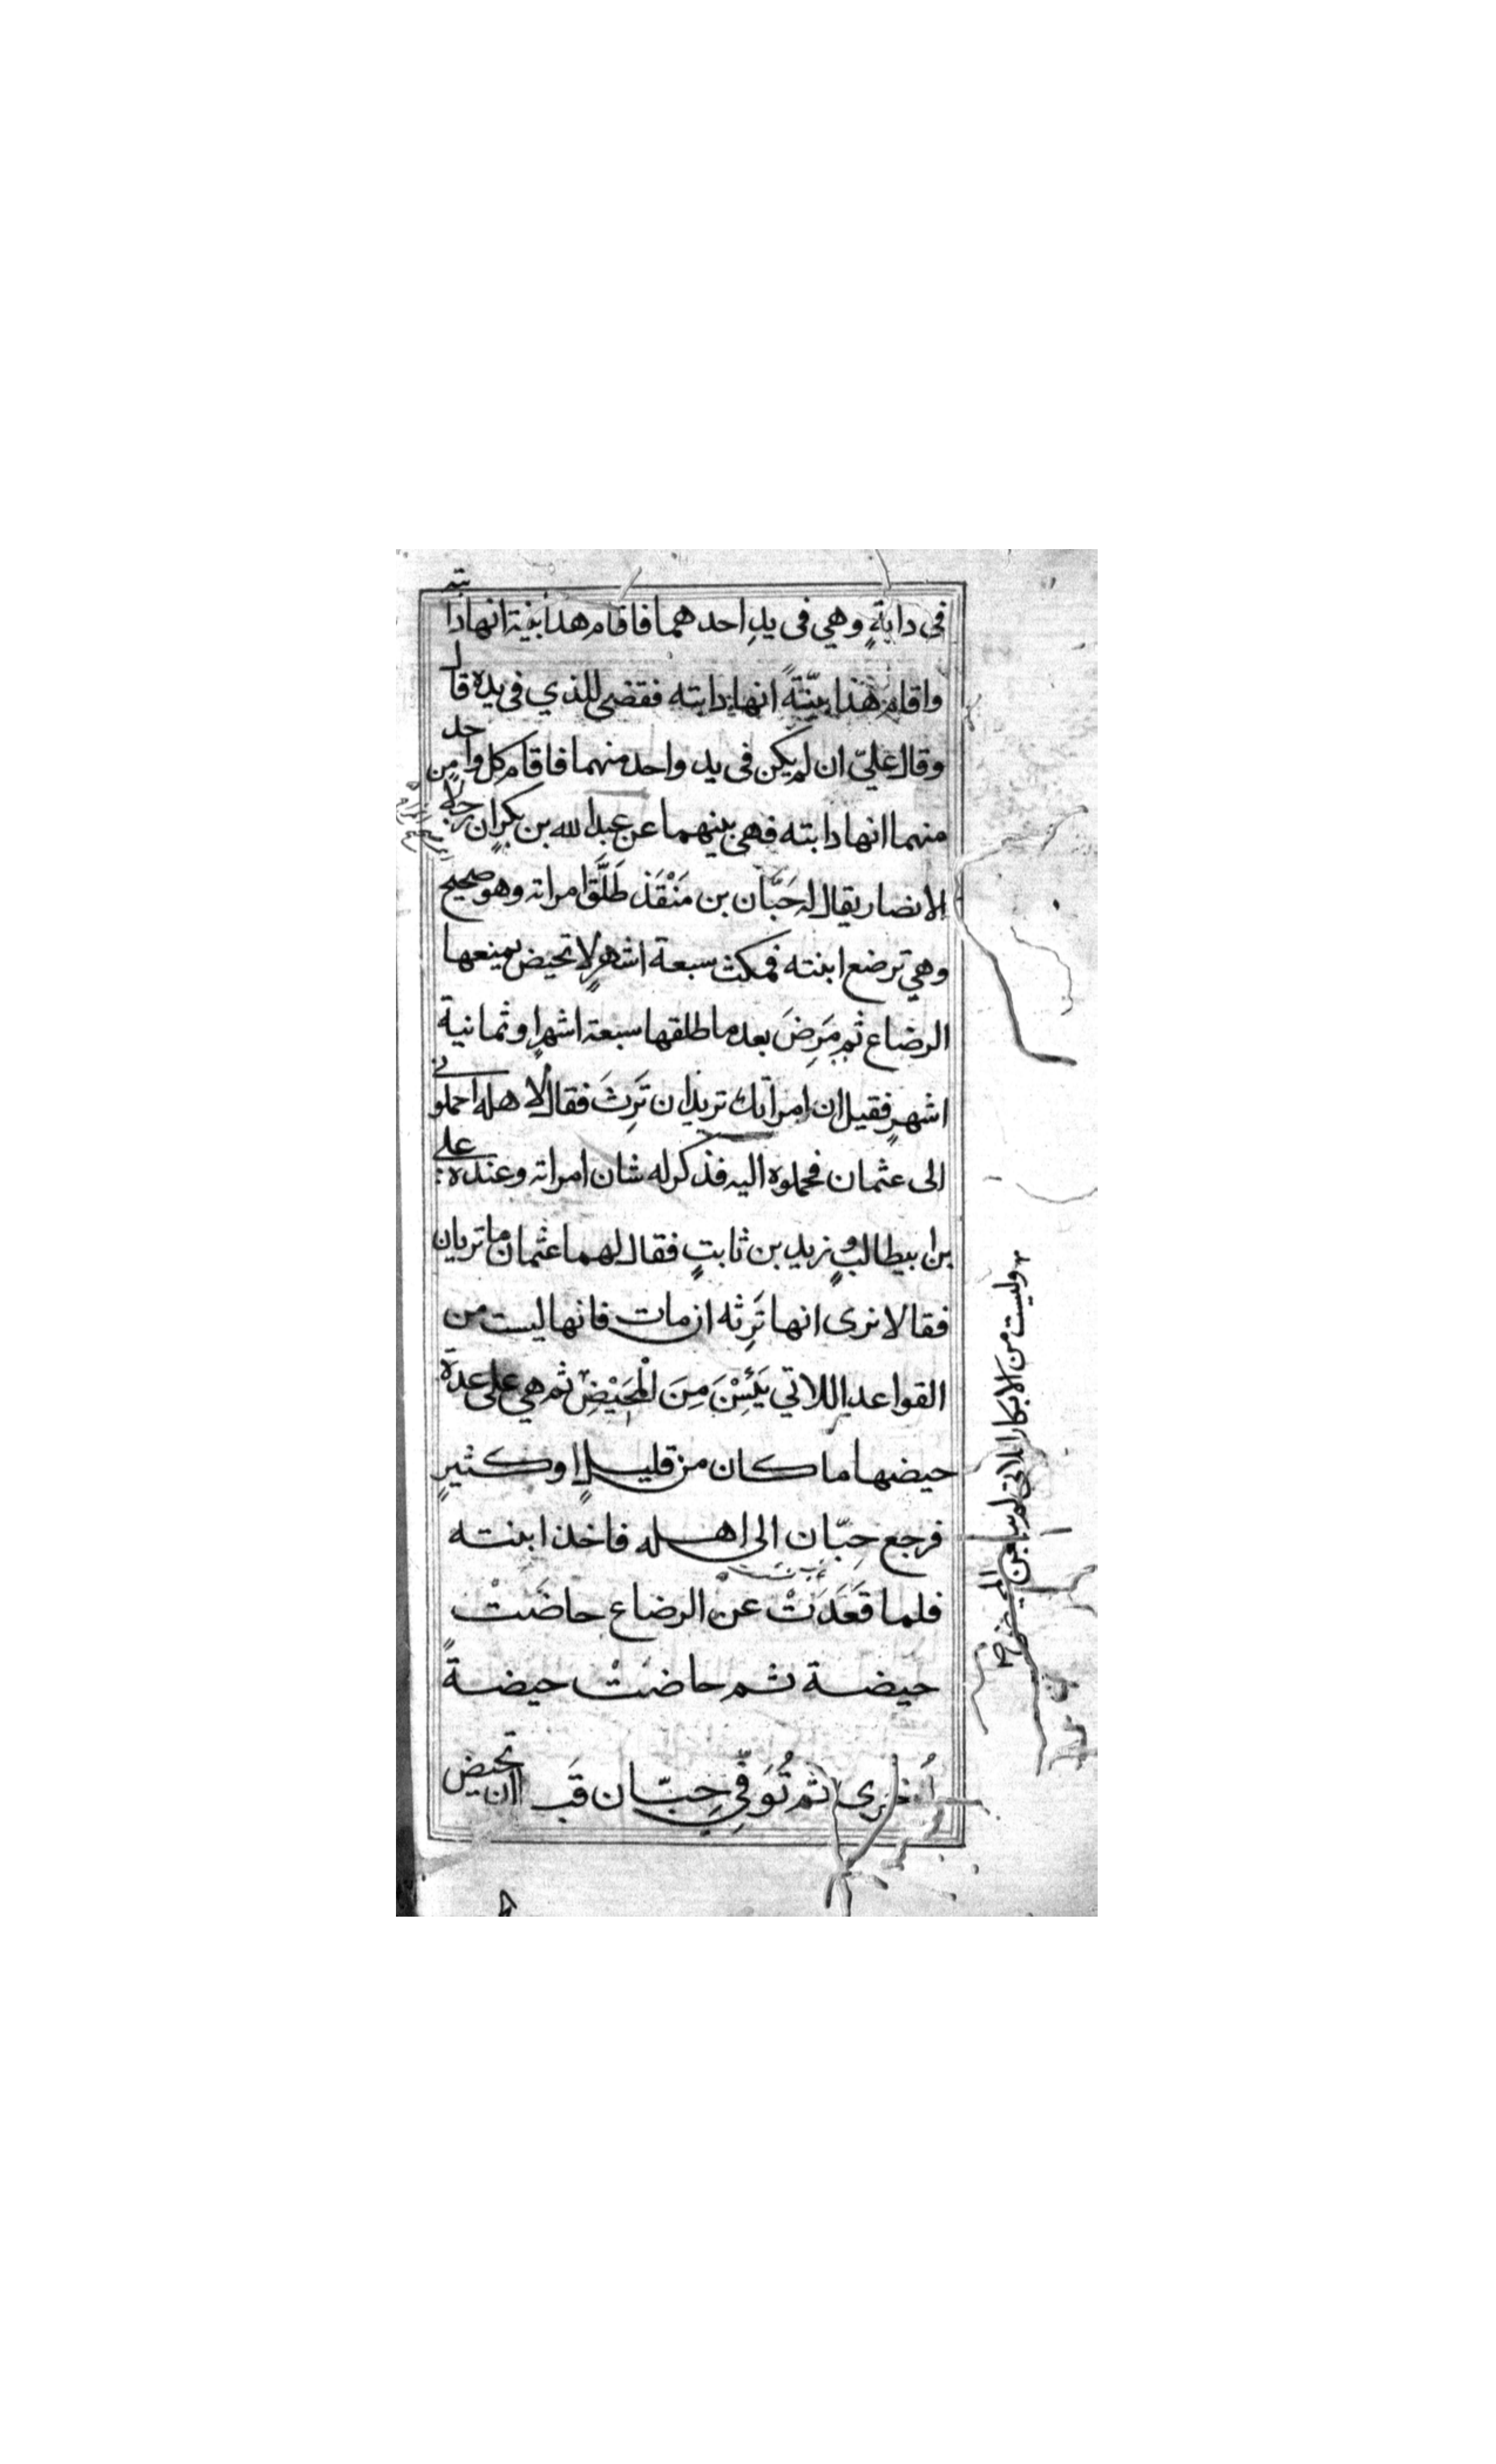 في دابةٍ وهي في يدِ احدهما فاقام هذا بينة انها دابته
واقام هذا بيّنةً انها دابته فقضى للذي في يده قال
وقال عليّ ان لم يكن في يد واحد منهما فاقام كل واحد من
منهما انها دابته فهي بينهما عن عبد الله بن بكرٍ ان رجلا
الانصار يقال له حَبَّان بن مَنْقَذ طَلَّقَ امراته وهو صحيح
وهي ترضع ابنته فمكث سبعة اشهرٍ لا تحيض يمنعها
الرضاع ثم مَرِضَ بعد ما طلقها سبعة اشهرٍ او ثمانية
اشهرٍ فقيل ان امراتك تريد ان تَرِثَ فقال لاهله احملوني
الى عثمان فحملوه اليه فذكر له شان امراته وعنده علي
بن ابيطالب وزيد بن ثابتٍ فقال لهما عثمان ما تريان
فقالا نرى انها تَرِثه ان مات فانها ليست من
القواعد اللاتي يَئِسْنَ مِنَ الْمَحَيْضِ ثم هي على عدة
حيضها ما كان من قليلٍ او كثيرٍ
فرجع حِبّان الى اهله فاخذ ابنته
فلما قَعَدَتْ عن الرضاع حاضَتْ
حيضة ثم حاضتْ حيضةً
اُخرى ثم تُوَفِّيَ حِبّان قَب ان تحيض
وليست من الابكار اللاتي لم يبلغن المحيض